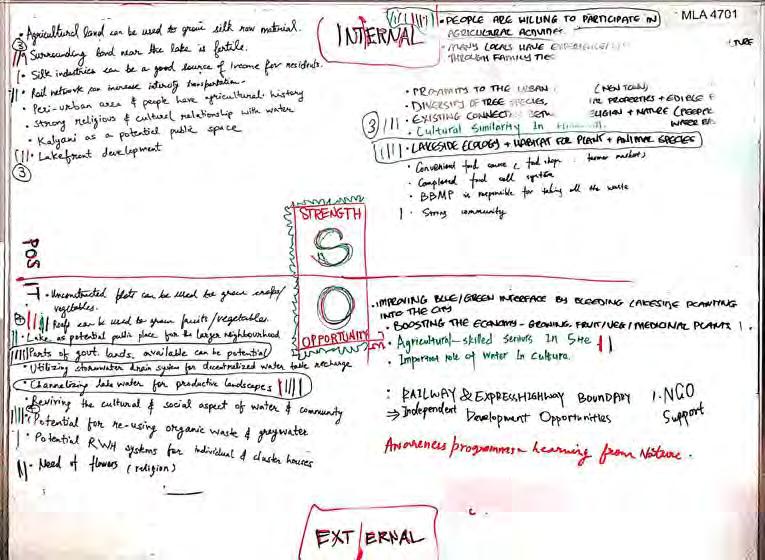 MLA 4701
INTERNAL
• Agricultural land can be used to grow silk raw material.
③
• Surrounding land near the lake is fertile.
• Silk industries can be a good source of income for residents.
• Rail network can increase intercity transportation.
• Peri-urban area & people have agricultural history
• Strong religious & cultural relationship with water
• Kalyani as a potential public space
• Lakefront development
③
• PEOPLE ARE WILLING TO PARTICIPATE IN
AGRICULTURAL ACTIVITIES.
• MANY LOCALS HAVE
THROUGH FAMILY TIES
TURE
• PROXIMITY TO THE URBAN (NEW TOWN)
• DIVERSITY OF TREE SPECIES, PROPERTIES + EDIBLE
• EXISTING CONNECTION + NATURE (PEEPLE
WATER
③
• Cultural Similarity In
• LAKESIDE ECOLOGY + HABITAT FOR PLANT + ANIMAL SPECIES
• Convenient food farmer markets)
• Completed food system
• BBMP is responsible for taking all the waste
• Strong community
STRENGTH
S
POSIT
O
OPPORTUNITY
• Unconstructed plots can be used to grow crops/
vegetables.
• Roofs can be used to grow fruits/vegetables.
• Lake as potential public place for the larger neighbourhood
• Parts of govt. lands available can be potential
• Utilizing stormwater drain system for decentralized water table recharge
• Channelizing lake water for productive landscapes
• Reviving the cultural & social aspect of water & community
• Potential for re-using organic waste & greywater
• Potential RWH systems for individual & cluster houses
• Need of flowers (religion)
• IMPROVING BLUE/GREEN INTERFACE BY BLEEDING LAKESIDE PLANTING
INTO THE CITY
• BOOSTING THE ECONOMY - GROWING FRUIT/VEG/MEDICINAL PLANTS
• Agricultural-skilled seniors In Site
• Important role of Water In Culture.
: RAILWAY & EXPRESSHIGHWAY BOUNDARY
⇒ Independent Development Opportunities
NGO
Support
Awareness programmes - Learning from Nature.
EXTERNAL